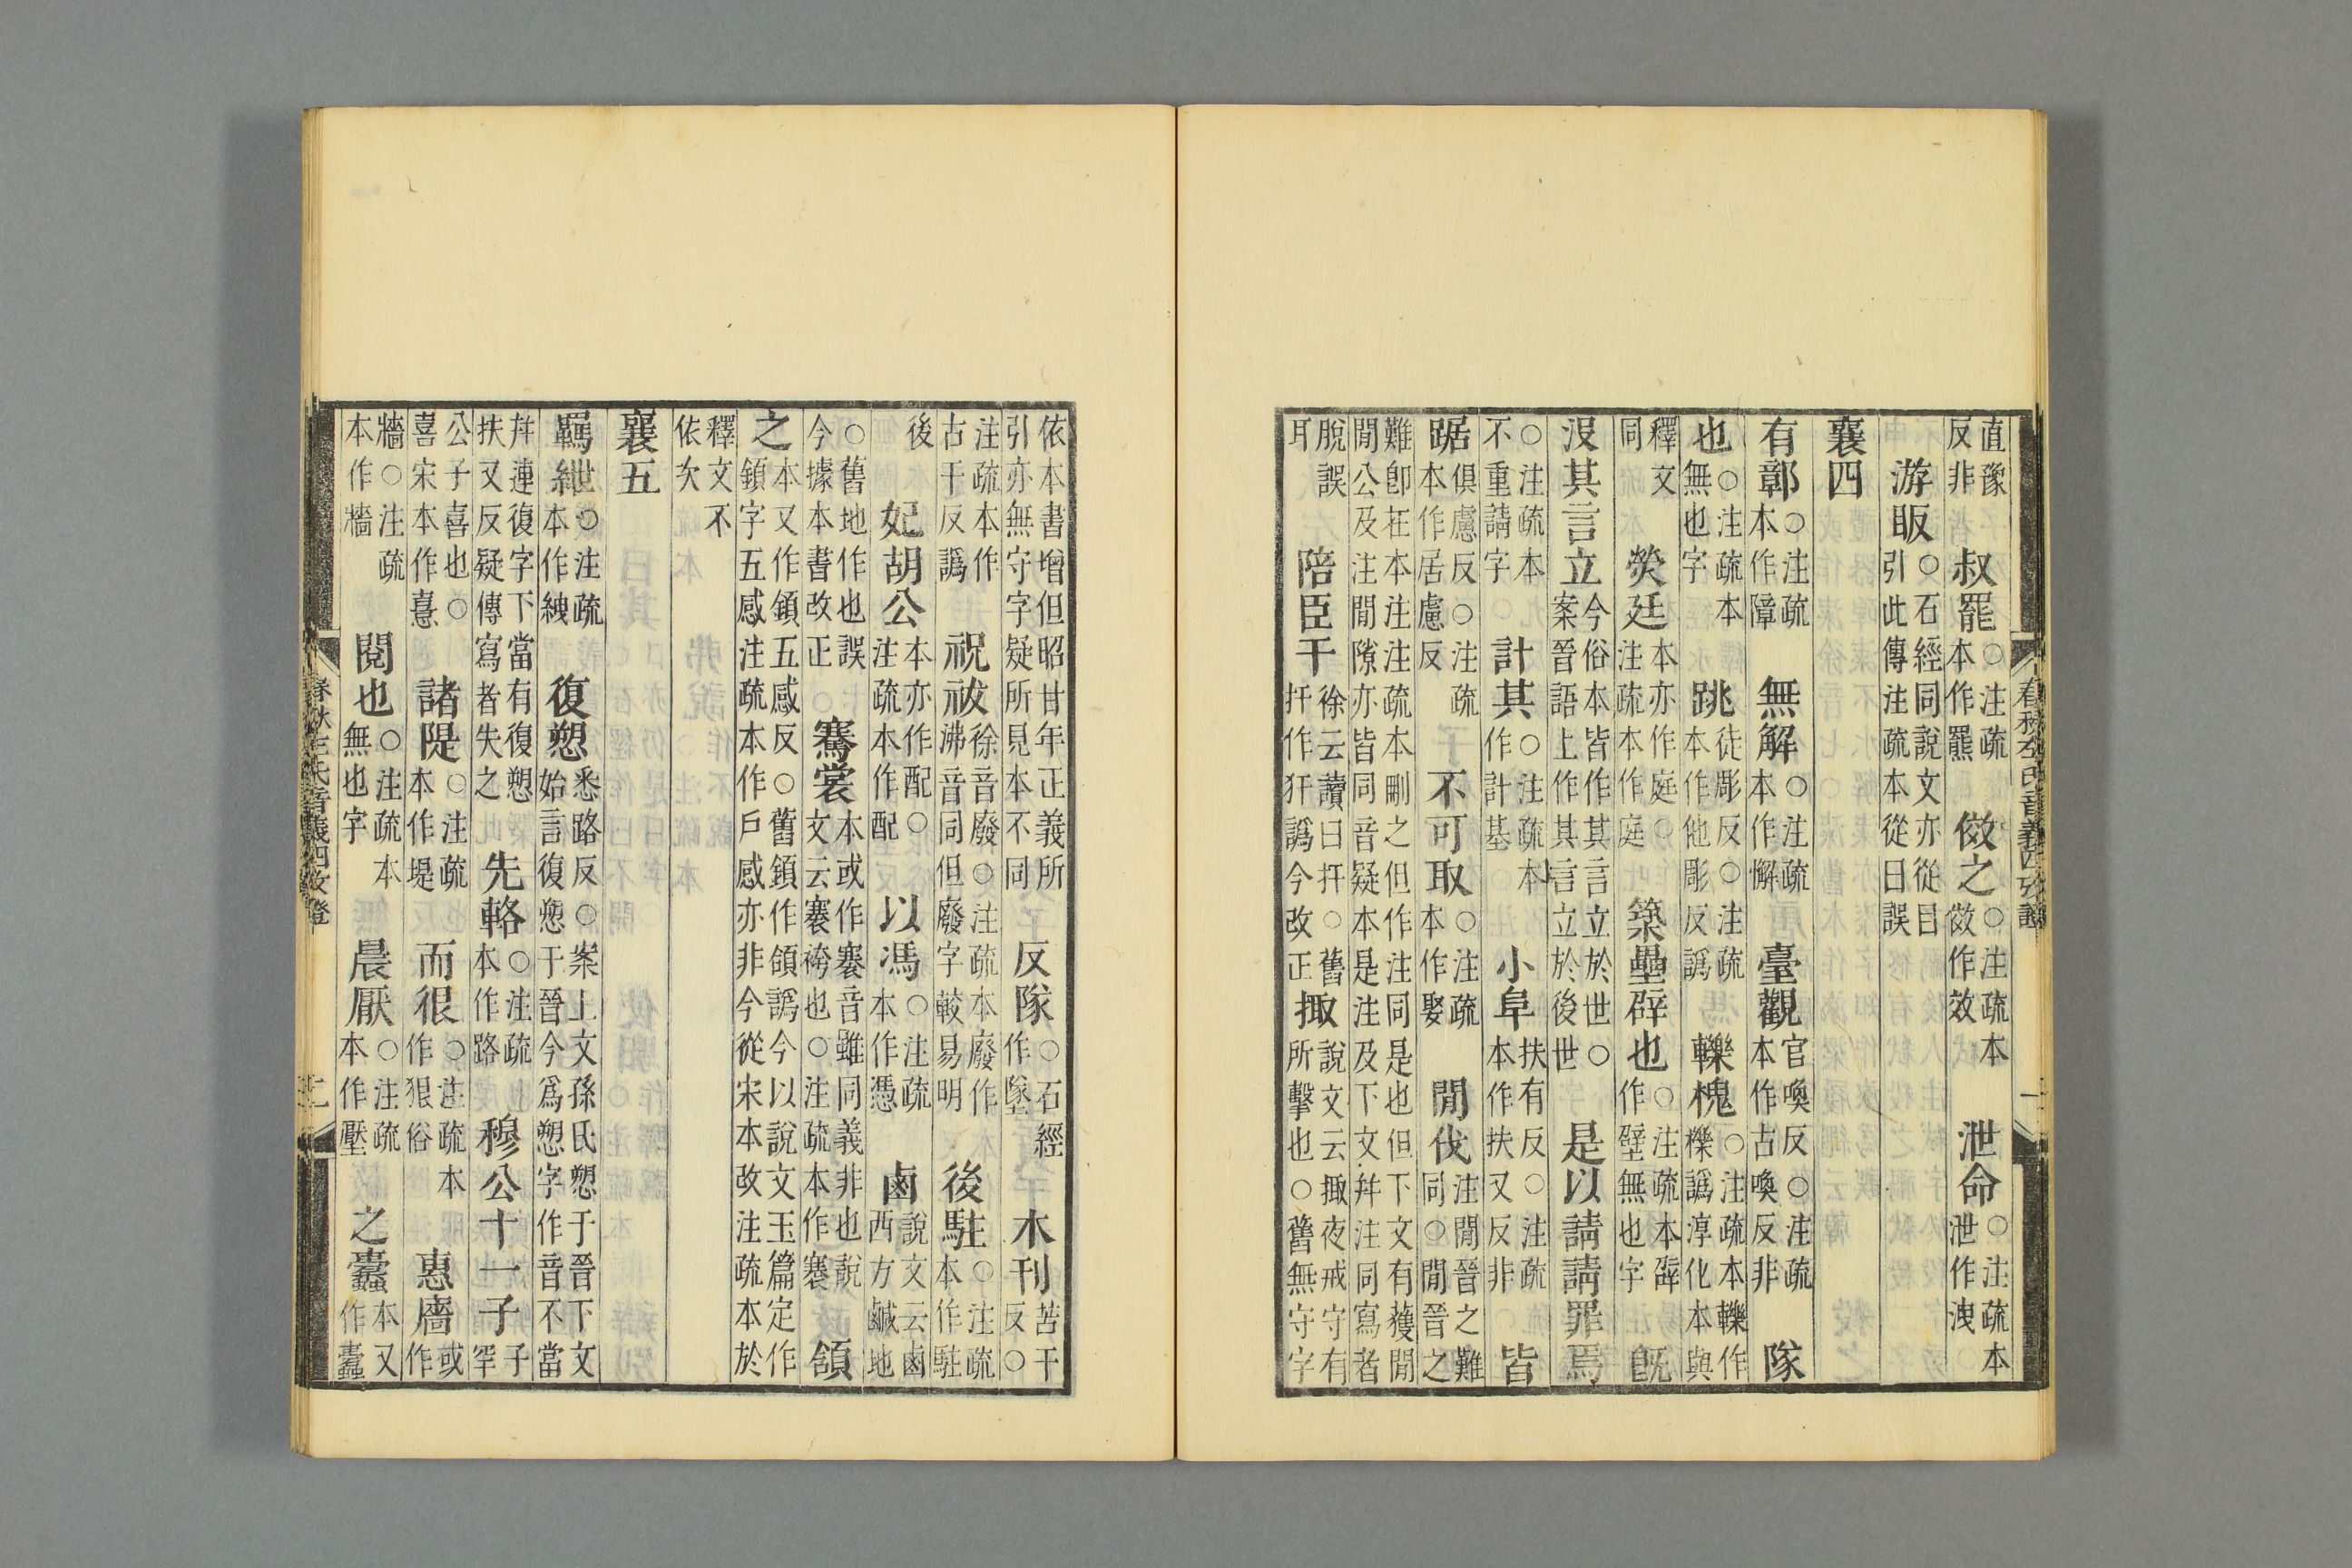 直豫反非　叔罷○注疏本作罷　傚之○注疏本傚作效　泄命○注疏本泄作洩
游眅○石經同說文亦從目引此傳注疏本從日誤
襄四
有鄣○注疏本作障　無解○注疏本作懈　臺觀官喚反○注疏本作古喚反非　隊
也○注疏本無也字　跳徒彫反○注疏本作他彫反譌　轢槐○注疏本轢作櫟譌淳化本與
釋文同　熒廷本亦作庭○注疏本作庭　築壘辟也○注疏本辟作壁無也字　既
沒其言立今俗本皆作其言立於世○案晉語上作其言立於後世　是以請請罪焉
○注疏本不重請字　計其○注疏本作計基　小阜扶有反○注疏本作扶又反非　皆
踞俱慮反○注疏本作居慮反　不可取○注疏本作娶　閒伐注閒晉之難同○閒晉之
難卽在本注注疏本刪之但作注同是也但下文有獲閒閒公及注閒隙亦皆同音疑本是注及下文幷注同寫者
脫誤耳　陪臣干徐云讀曰扞○舊扞作犴譌今改正　掫說文云掫夜戒守有所擊也○舊無守字
依本書增但昭廿年正義所引亦無守字疑所見本不同　反隊○石經作墜　木刊苦干反○
注疏本作古干反譌　祝祓徐音廢○注疏本廢作沸音同但廢字較易明　後駐○注疏本作駐
後　妃胡公本亦作配○注疏本作配　以馮○注疏本作憑　鹵說文云鹵西方鹹地
○舊地作也誤今據本書改正　騫裳本或作褰音雖同義非也說文云褰袴也○注疏本作褰　頷
之本又作鎖五感反○舊鎖作頷譌今以說文玉篇定作鎖字五感注疏本作戶感亦非今從宋本改注疏本於
釋文不依次
襄五
羈紲○注疏本作絏　復愬悉路反○案上文孫氏愬于晉下文始言復愬于晉今爲愬字作音不當
幷連復字下當有復愬扶又反疑傳寫者失之　先輅○注疏本作路　穆公十一子子罕
公子喜也○喜宋本作憙　諸隄○注疏本作堤　而很○注疏本作狠俗　惠牆或作
牆○注疏本作牆　閱也○注疏本無也字　晨厭○注疏本作壓　之橐本又作橐
春秋左氏音義四攷證
一
春秋左氏音義四攷證
二